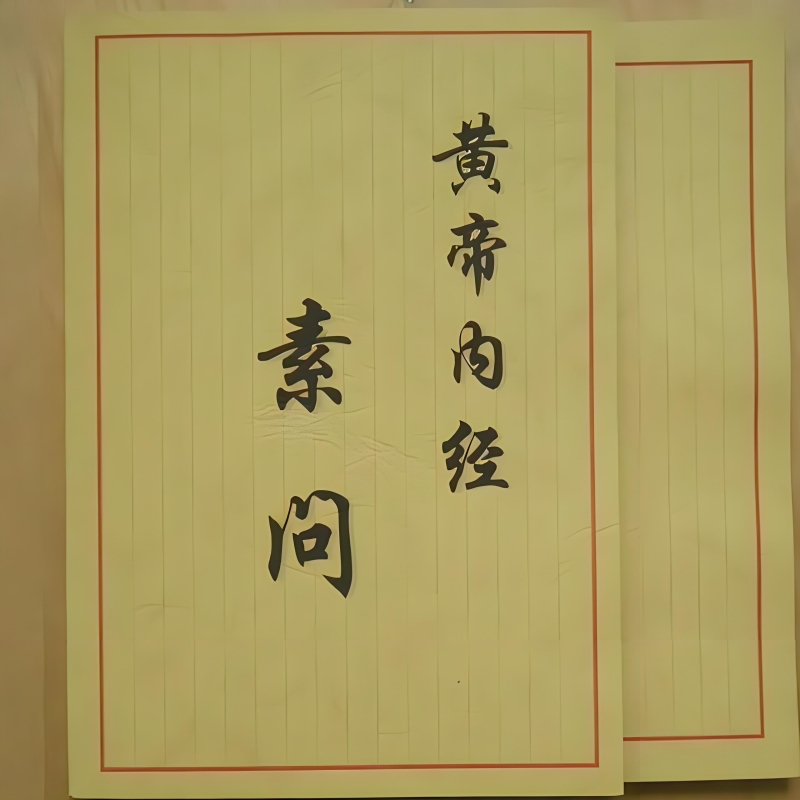 黄帝内经
素问